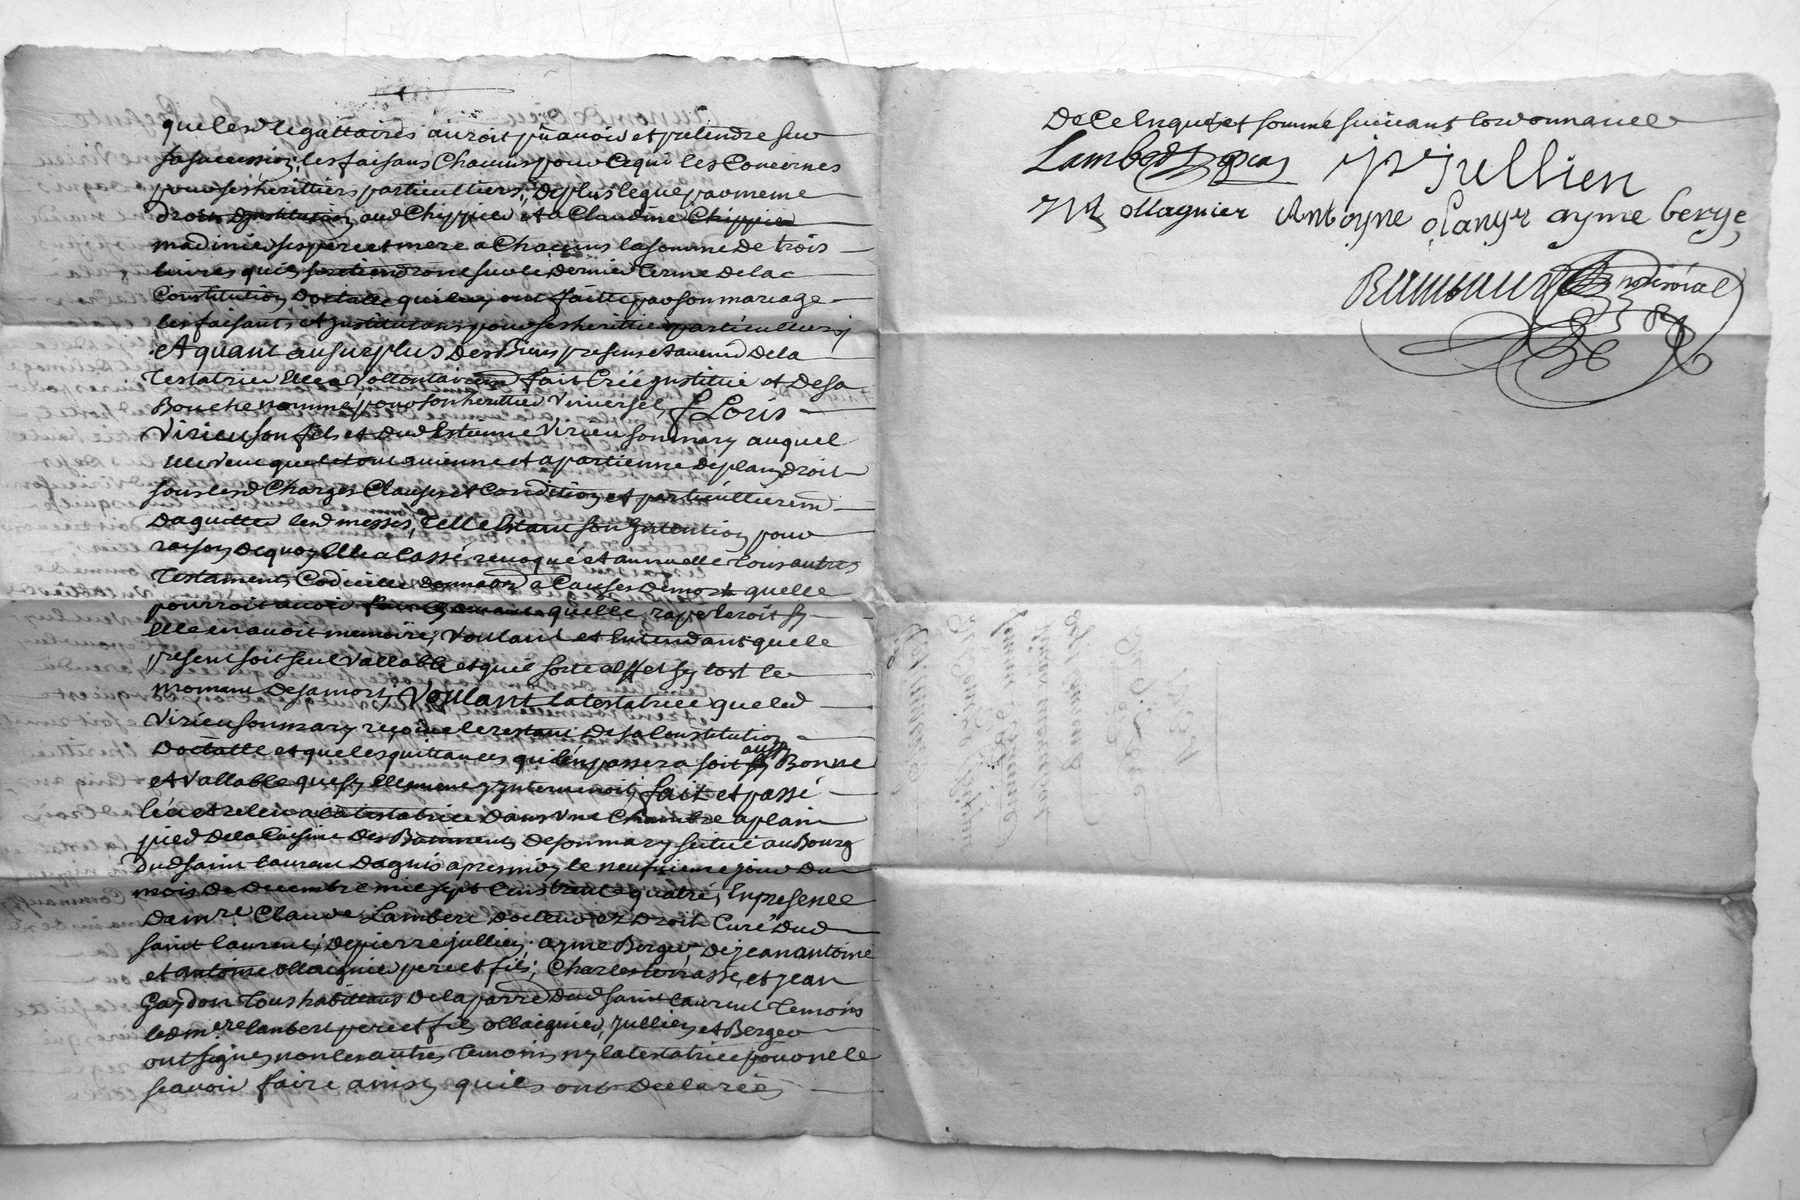 que lesd legattaires auroit pû avoir et pretendre sur
sa succession, les faisans chacuns pour ce qui les concernes
pour ses herittiers particulliers, De plus legue par meme
Droit Dinstitution aud Chippier et a Claudine Chippier
madinier ses pere et mere a Chacuns la somme De trois
livres quils retiendront sur le Dernier terme de la
Constitution Doctalle qui luy ont faitte par son mariage
les faisants et Jnstituans pour ses herittiers particulliers,
Et quant au surplus Des Biens presens et avenir De la
Testatrice Elle a vollontairemd fait Créé Jnstitué et De sa
Bouche nommé pour son herittier Vniversel, Sr Loüis
Virieu son fils et Dud Estienne Virieu son mary auquel
Elle veut que le tout avienne et apartienne De plain Droit
sous lesd Charges Clauses et Condition et particulliéremd
Daquitter lesd messes, Telle Estant son Jntention pour
raison De quoy Elle a Cassé, revoqué et annuellé tous autres
Testaments Codicille Donnaon a Causes De mort quelle
pourroit avoir quelle rapeleroit sy
Elle en avoit memoire, Voulant et Entendant que le
present soit seul vallable et quil sorte Effet sy tost le
momant De sa mort, Voulant la testatrice que led
Virieu son mary reçoive le restant De sa Constitution
Doctalle et que les quittances quil en passera soit aussy Bonne
et vallable que sy Elle meme y Jntervenoit, fait et passé
leu et releu a la testatrice Dans Une Chambre a plain
pied De la Cuisine Des Batiments De son mary scitué au Bourg
Dud saint laurent Dagnis apres midy le neufvieme jour Du
mois De Decembre mil sept Cens trente quatre, En presence
Da mre Claude Lambert Docteur Ez Droit Curé Dud
saint laurent, De pierre jullien, ayme Berger, De jean antoine
et antoine ollaignier pere et fils, Charles terrasse, et jean
Gaydon Tous habitans De la parre Dud saint laurent Temoins
led mre lambert pere et fils ollaignier, jullien et Berger
ont signes non les autres temoins ny la testatrice pour ne le
scavoir faire ainsy quils ont Declarées
De Ce Enquis et sommé suivant lordonnance
Lambert
Jullien
ollagnier Antoyne olanyr ayme berge